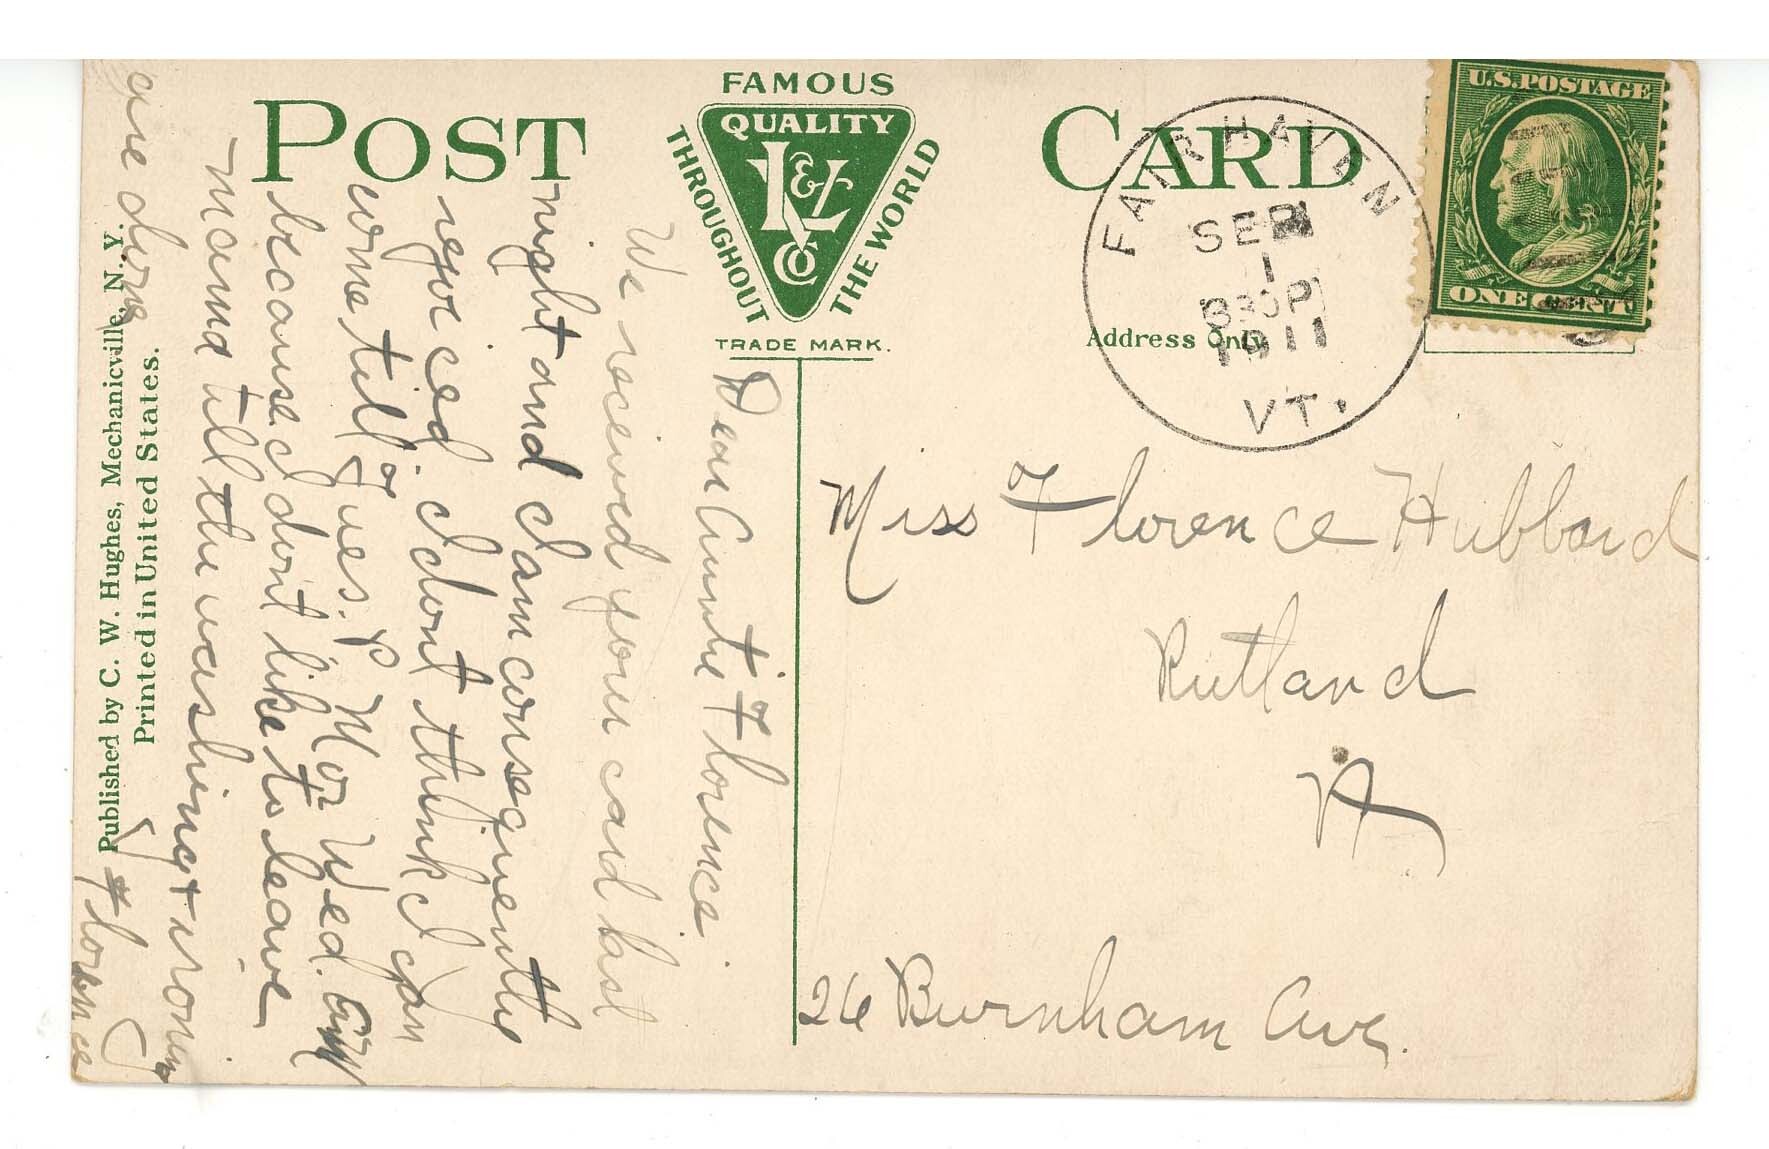 POST CARD
FAMOUS
QUALITY
THROUGHOUT
THE WORLD
K & L CO
TRADE MARK.
Address Only
U.S. POSTAGE
ONE CENT
FAIR HAVEN
SEP
1
330P
1911
VT.
Published by C. W. Hughes, Mechanicville, N. Y.
Printed in United States.
Dear Auntie Florence
We received your card last
night and I am consequently
rejoiced. I dont think I can
come till Tues. P. M. or Wed.
because I dont like to leave
mama till the washing & ironing
are done
Florence
Miss Florence Hubbard
Rutland
Vt
26 Burnham Ave.